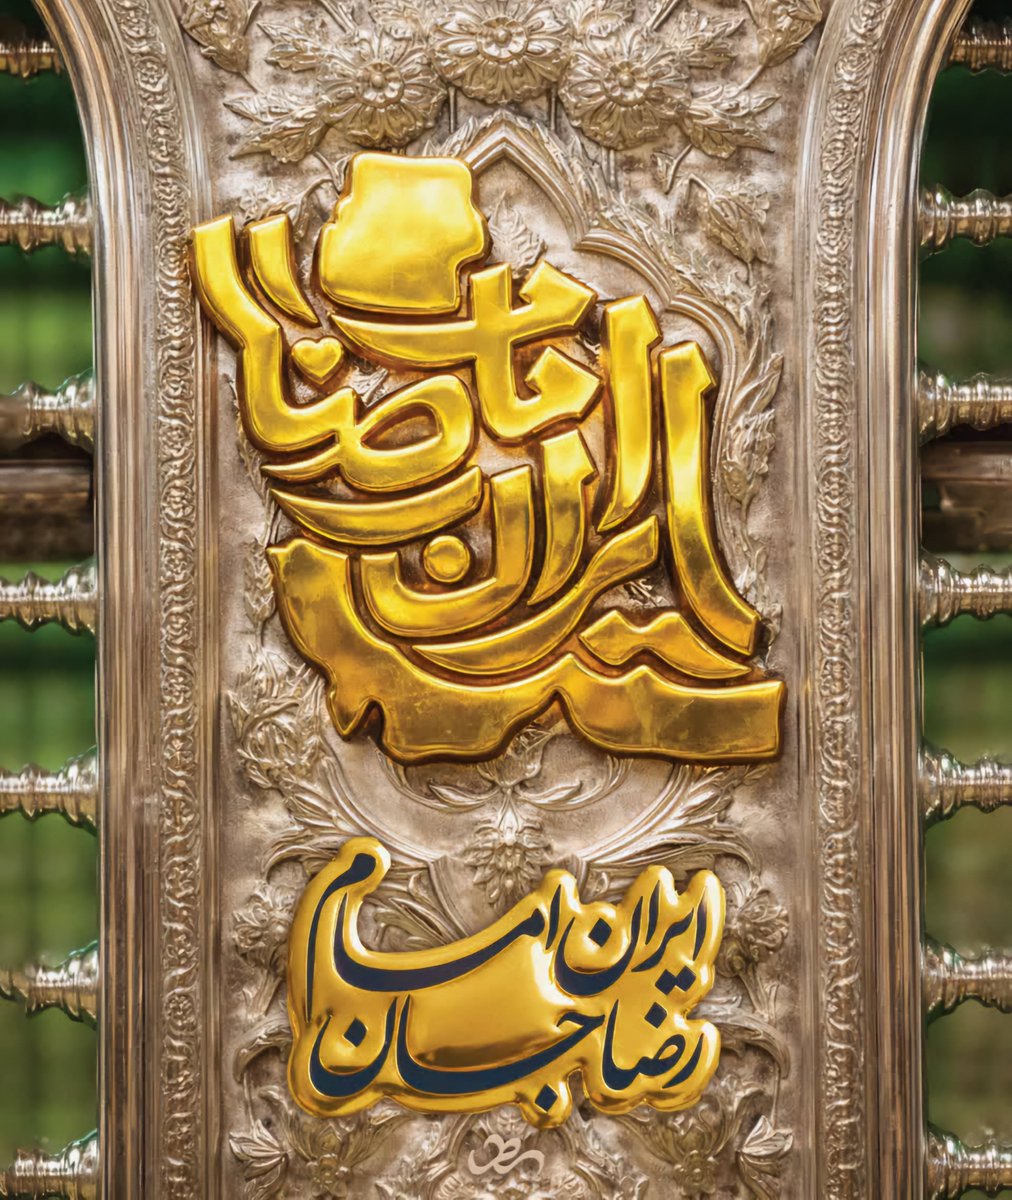 ایران امام رضا
ایران امام
رضا جان